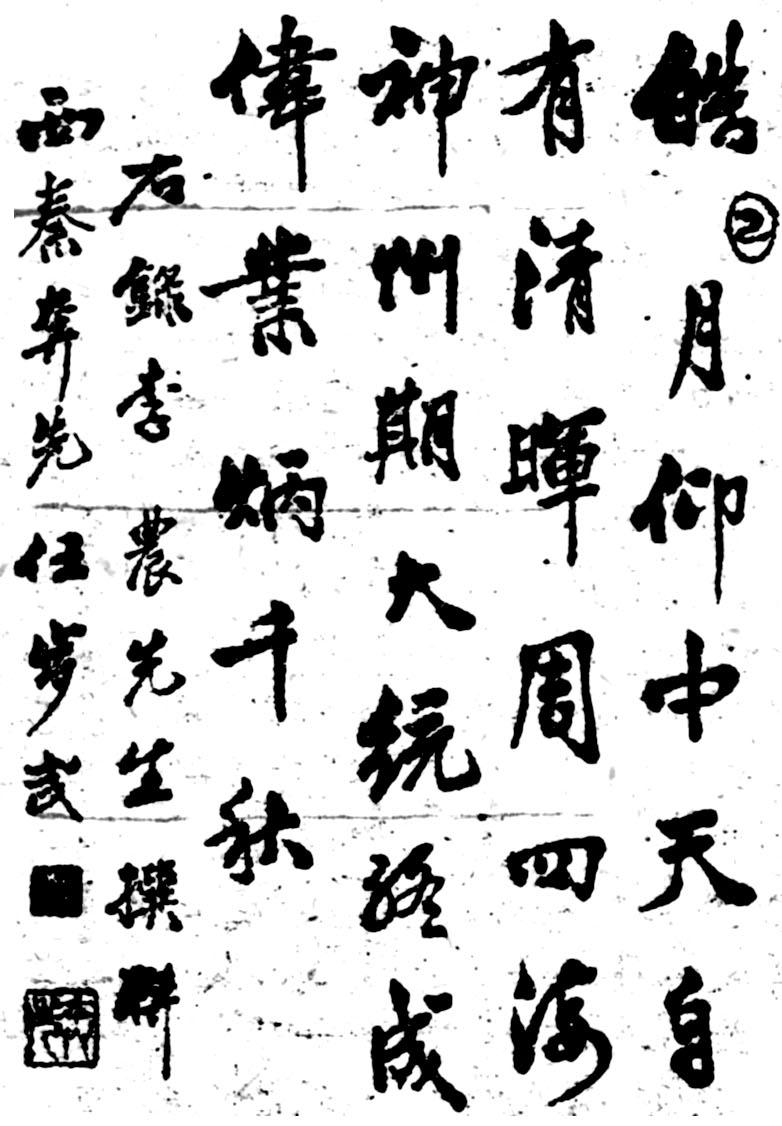 皓月仰中天自
②
有清暉周四海
神州期大統終成
偉業炳千秋
右錄李農先生撰聯
西秦龚先任步武